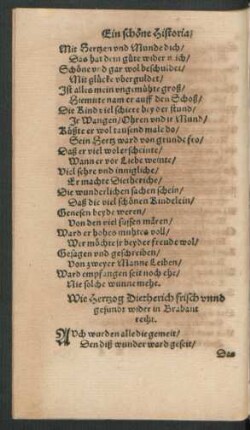 Ein schöne Historia/
Mit Hertzen vnd Munde dich/
Das hat dem güte wider dich/
Schöne vnd gar wol beschuldet/
Mit glücke vberguldet/
Ist alles mein vngemühte groß/
Hiemitte nam er auff den Schoß/
Die Kind viel schiere beyder stund/
Je Wangen/ Ohren vnd jr Mund/
Küßte er wol tausend male do/
Sein Hertz ward von grunde fro/
Daß er viel wol erscheinte/
Wann er vor Liebe weinte/
Viel sehre vnd innigliche/
Er machte Dietheriche/
Die wunderlichen sachen schein/
Daß die viel schönen Kindelein/
Genesen beyde weren/
Von den viel süssen mären/
Ward er hohes muhtes voll/
Wir möchte jr beyder freude wol/
Gesagen vnd geschreiben/
Von zweyer Manne Leiben/
Ward empfangen seit noch ehe/
Nie solche wunne mehr.
Wie Hertzog Dietherich frisch vnnd
gesundt wider in Brabant
reiht.
AVch wurden alle die gemeit/
Den diß wunder ward geseit/
Das